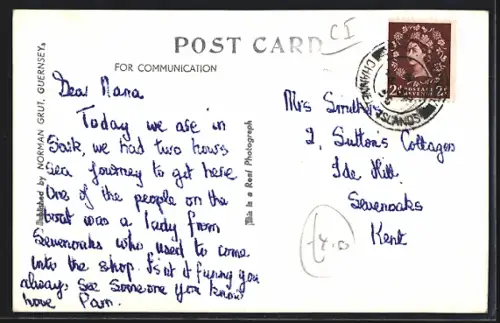 CI
POST CARD
FOR COMMUNICATION
Published by NORMAN GRUT, GUERNSEY.
This is a Real Photograph
CHANNEL ISLANDS
2d POSTAGE REVENUE 2d
Dear Nana.
Today we are in
Sark, we had two hours
sea journey to get here
One of the people on the
boat was a lady from
Sevenoaks who used to come
into the shop. Isnt it funny you
always see someone you know
love Pam.
Mrs Smithers
2, Suttons Cottages
Ide Hill.
Sevenoaks
Kent